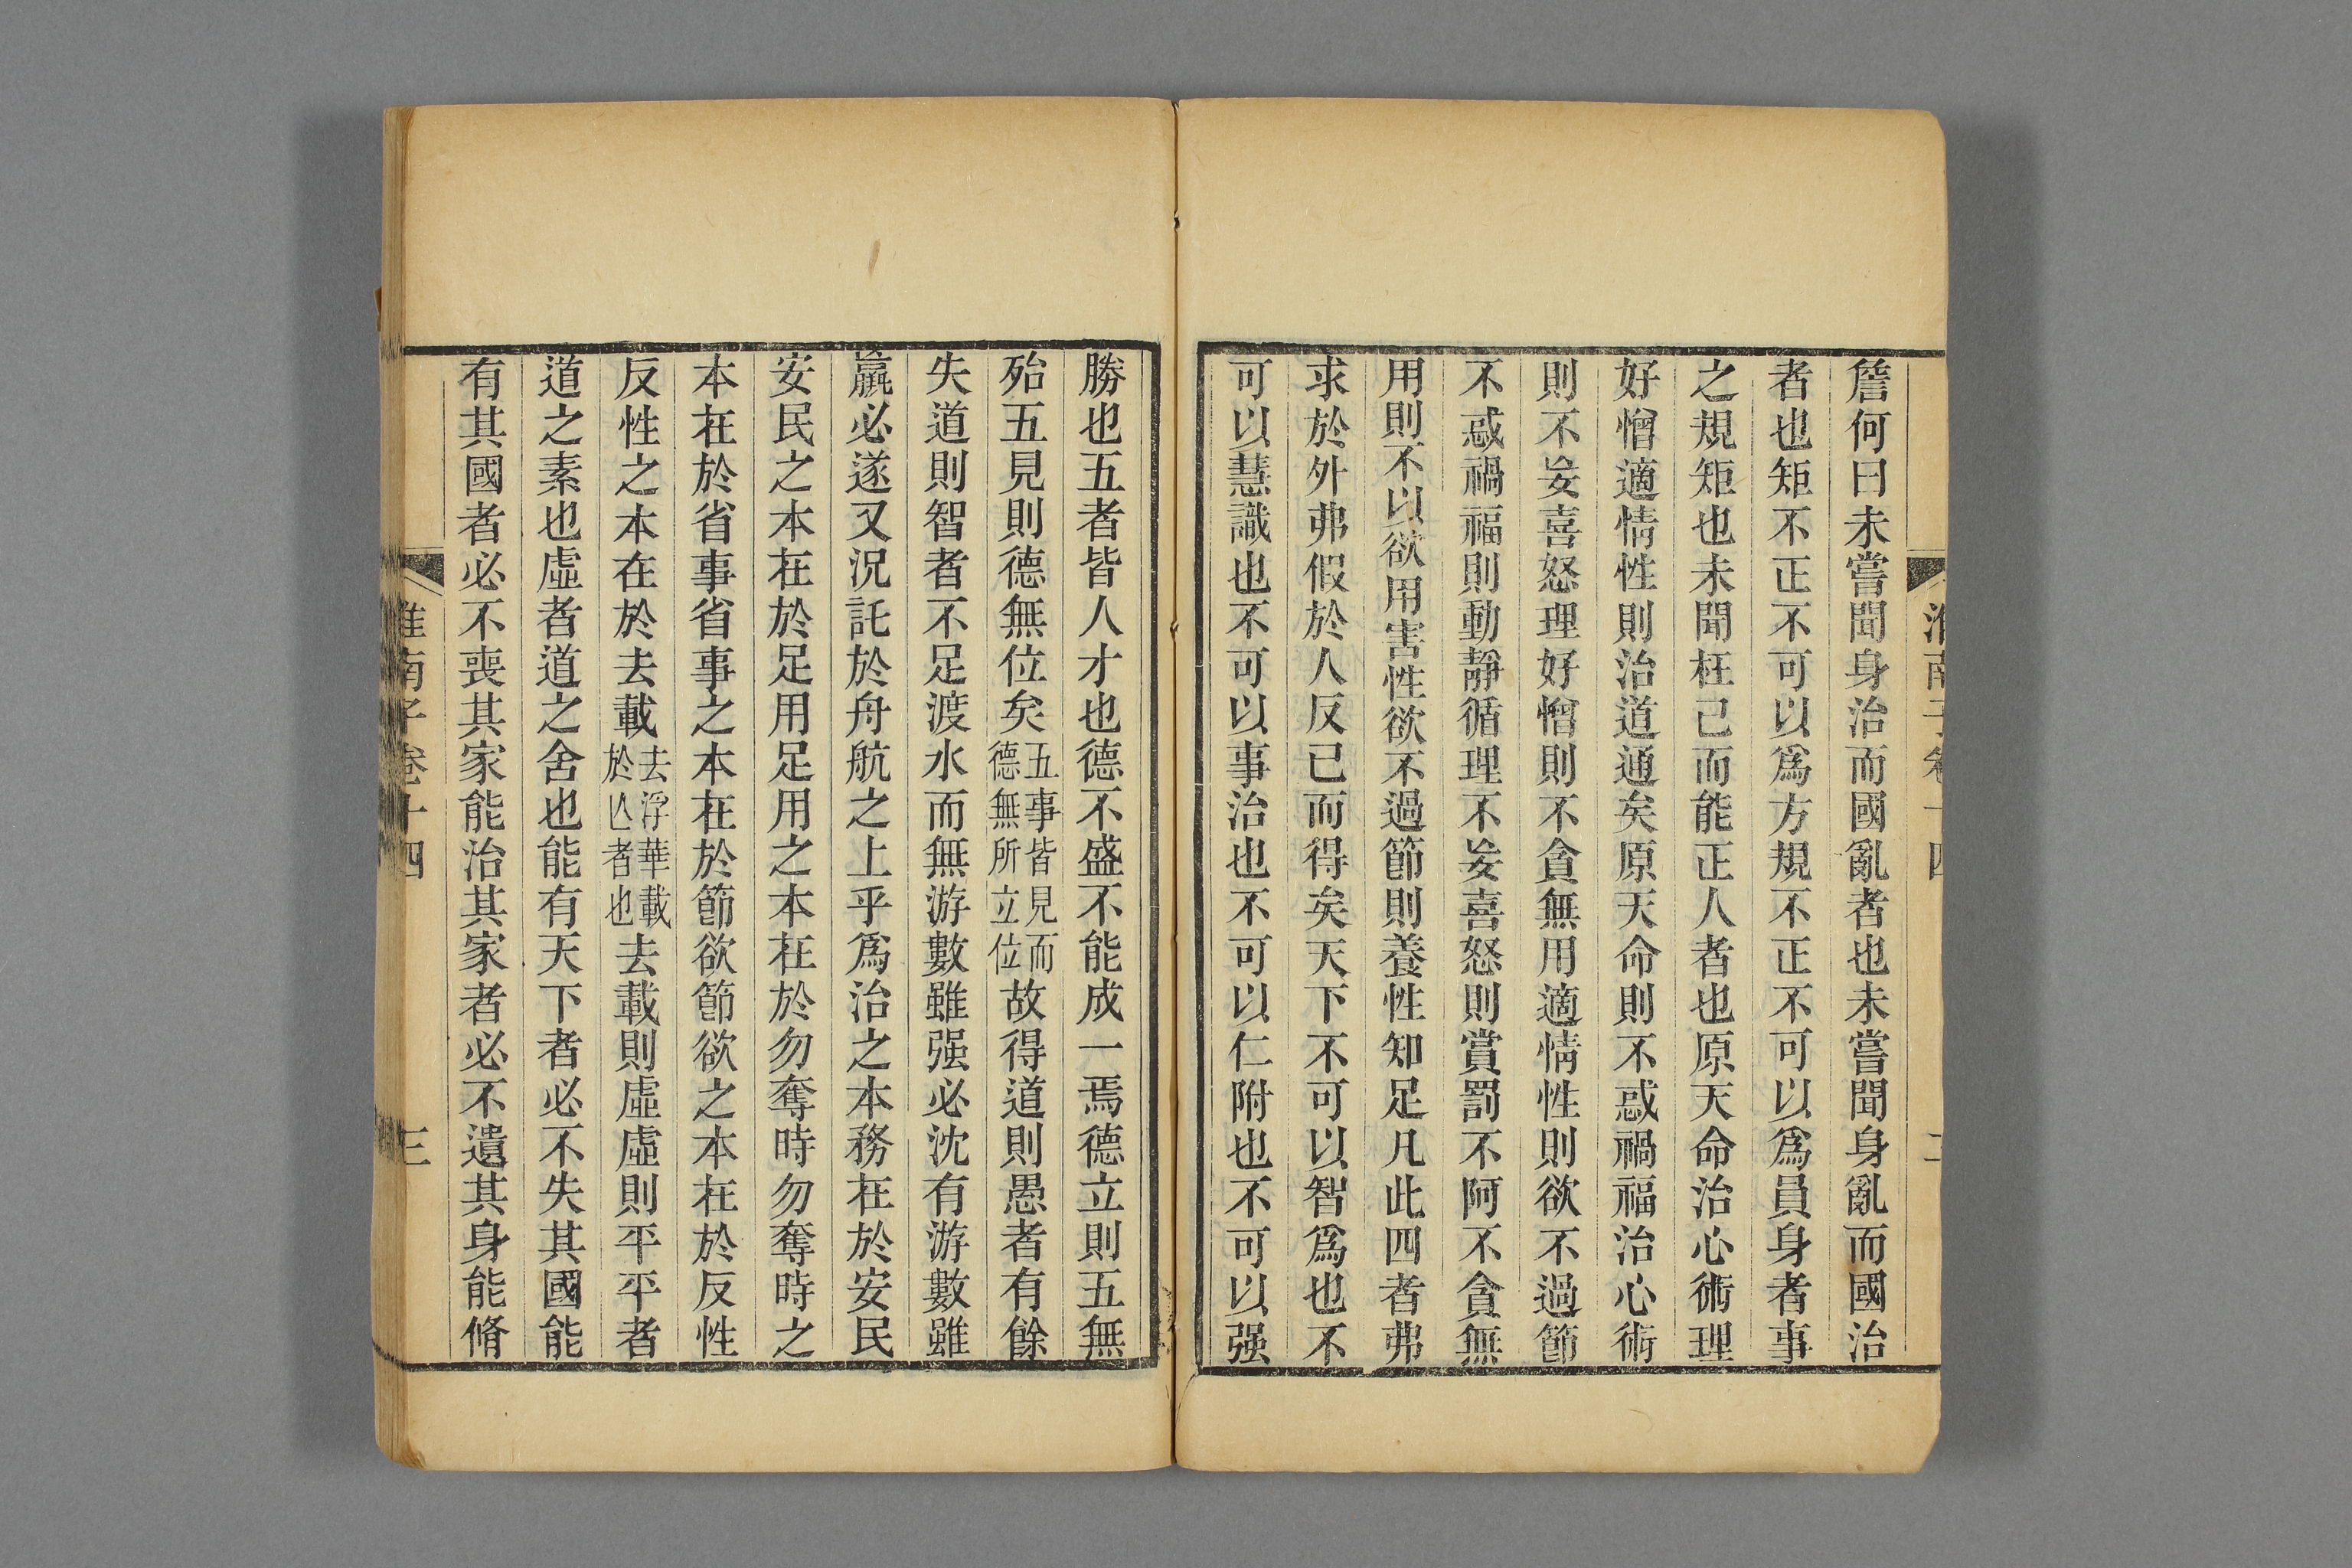 淮南子卷十四
二
詹何曰未嘗聞身治而國亂者也未嘗聞身亂而國治
者也矩不正不可以爲方規不正不可以爲員身者事
之規矩也未聞枉己而能正人者也原天命治心術理
好憎適情性則治道通矣原天命則不惑禍福治心術
則不妄喜怒理好憎則不貪無用適情性則欲不過節
不惑禍福則動靜循理不妄喜怒則賞罰不阿不貪無
用則不以欲用害性欲不過節則養性知足凡此四者弗
求於外弗假於人反己而得矣天下不可以智爲也不
可以慧識也不可以事治也不可以仁附也不可以强
勝也五者皆人才也德不盛不能成一焉德立則五無
殆五見則德無位矣五事皆見而德無所立位故得道則愚者有餘
失道則智者不足渡水而無游數雖强必沈有游數雖
羸必遂又況託於舟航之上乎爲治之本務在於安民
安民之本在於足用足用之本在於勿奪時勿奪時之
本在於省事省事之本在於節欲節欲之本在於反性
反性之本在於去載去浮華載於亾者也去載則虛虛則平平者
道之素也虛者道之舍也能有天下者必不失其國能
有其國者必不喪其家能治其家者必不遺其身能脩
淮南子卷十四
三